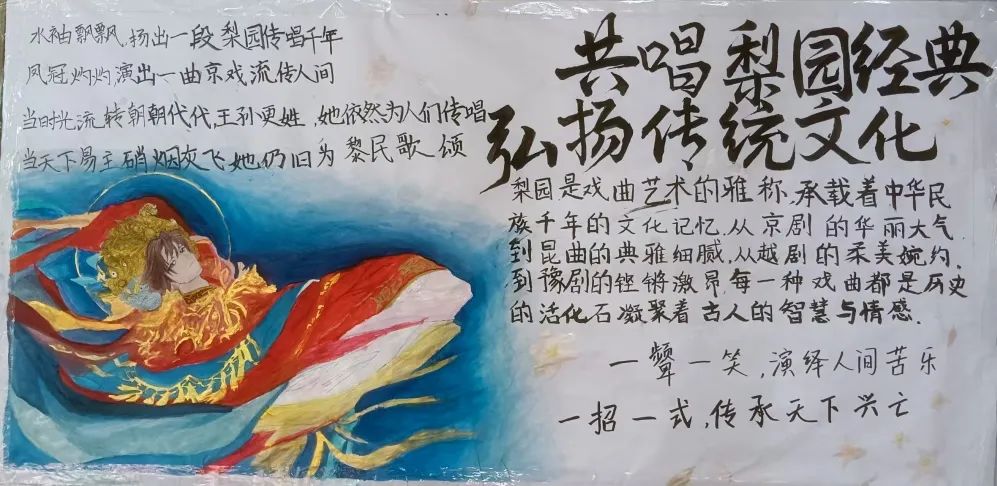 水袖飘飘,扬出一段梨园传唱千年
凤冠灼灼演出一曲京戏流传人间
当时光流转朝朝代代,王孙更姓,她依然为人们传唱
当天下易主硝烟灰飞,她仍旧为黎民歌颂
共唱梨园经典
弘扬传统文化
梨园是戏曲艺术的雅称,承载着中华民
族千年的文化记忆,从京剧的华丽大气
到昆曲的典雅细腻,从越剧的柔美婉约,
到豫剧的铿锵激昂,每一种戏曲都是历史
的活化石凝聚着古人的智慧与情感.
一颦一笑,演绎人间苦乐
一招一式,传承天下兴亡